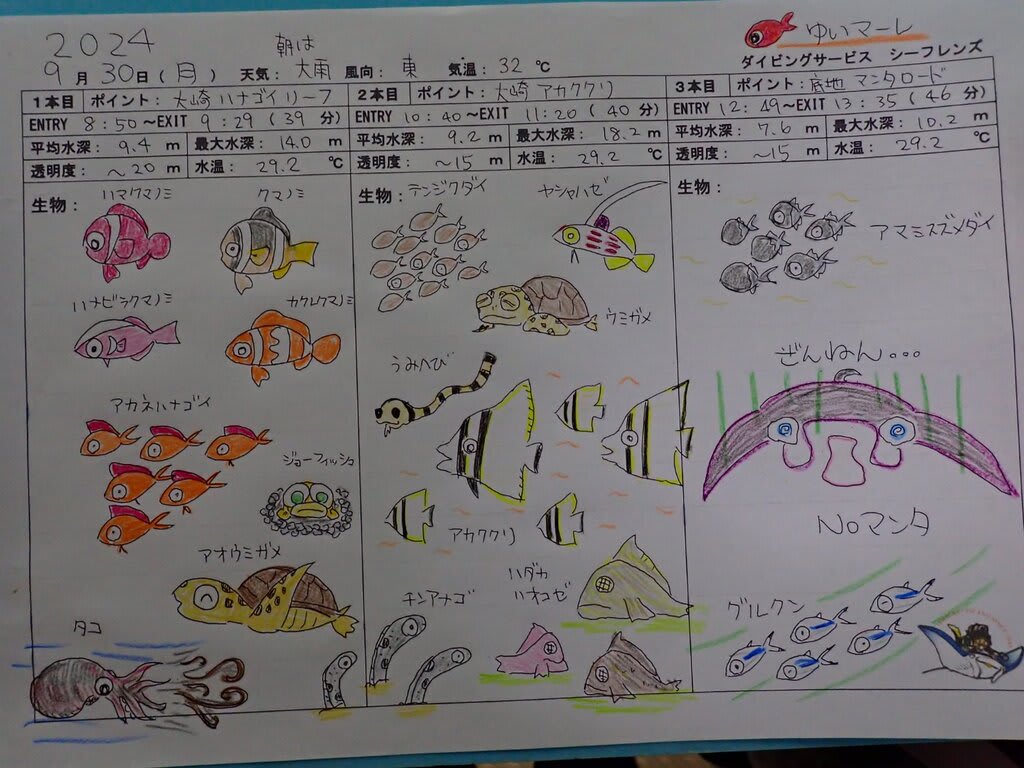 2024
ゆいマーレ
ダイビングサービス シーフレンズ
9月30日(月) 天気:朝は大雨 風向:東 気温:32℃
1本目 ポイント:大崎ハナゴイリーフ
ENTRY 8:50~EXIT 9:29(39分)
平均水深:9.4m 最大水深:14.0m
透明度:~20m 水温:29.2℃
生物:
ハマクマノミ
クマノミ
ハナビラクマノミ
カクレクマノミ
アカネハナゴイ
ジョーフィッシュ
アオウミガメ
タコ
2本目 ポイント:大崎アカククリ
ENTRY 10:40~EXIT 11:20(40分)
平均水深:9.2m 最大水深:18.2m
透明度:~15m 水温:29.2℃
生物:
テンジクダイ
ヤシャハゼ
ウミガメ
うみへび
アカククリ
ハダカ
ハオコゼ
チンアナゴ
3本目 ポイント:底地マンタロード
ENTRY 12:49~EXIT 13:35(46分)
平均水深:7.6m 最大水深:10.2m
透明度:~15m 水温:29.2℃
生物:
アマミスズメダイ
ざんねん...
Noマンタ
グルクン